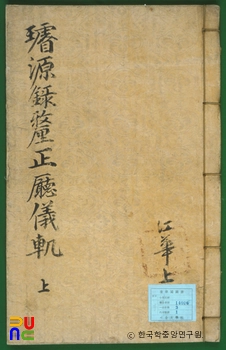 璿源錄釐正廳儀軌
上
江華上
PUNC
© 한국학중앙연구원